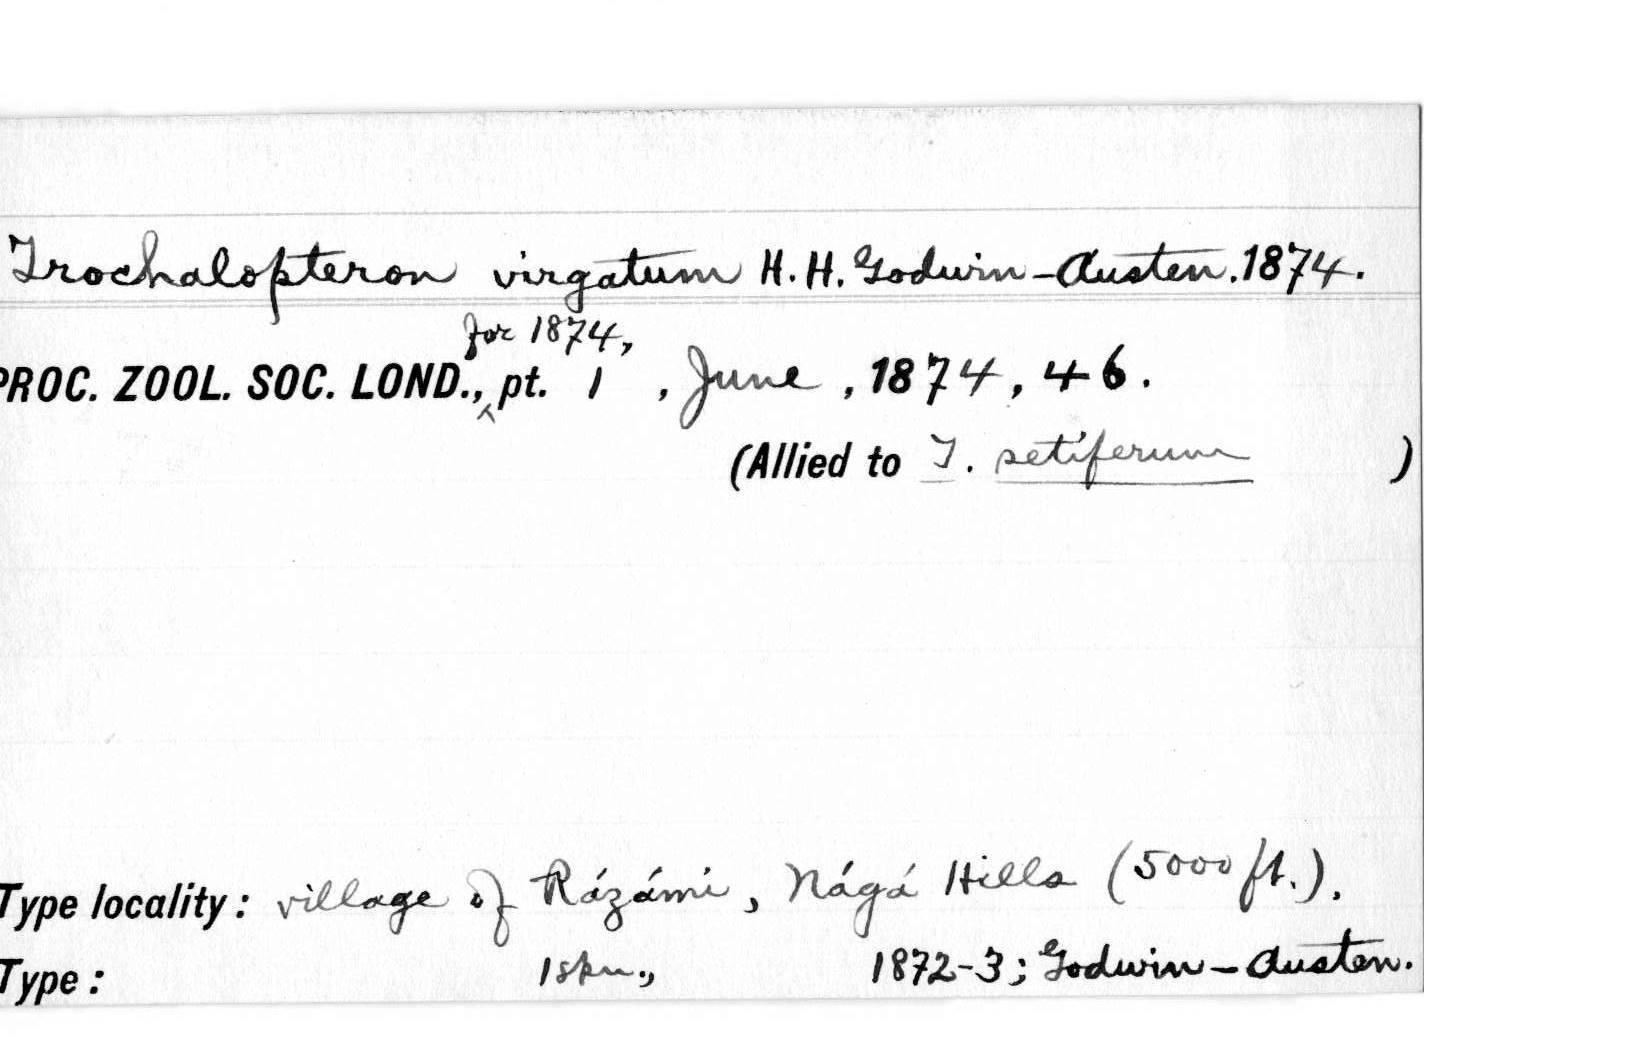 Trochalopteron virgatum H. H. Godwin-Austen. 1874.
for 1874,
PROC. ZOOL. SOC. LOND., ^ pt. 1 , June , 1874 , 46.
(Allied to T. setiferum )
Type locality: village of Rázámi, Nágá Hills (5000 ft.).
Type: 1 spn., 1872-3; Godwin-Austen.